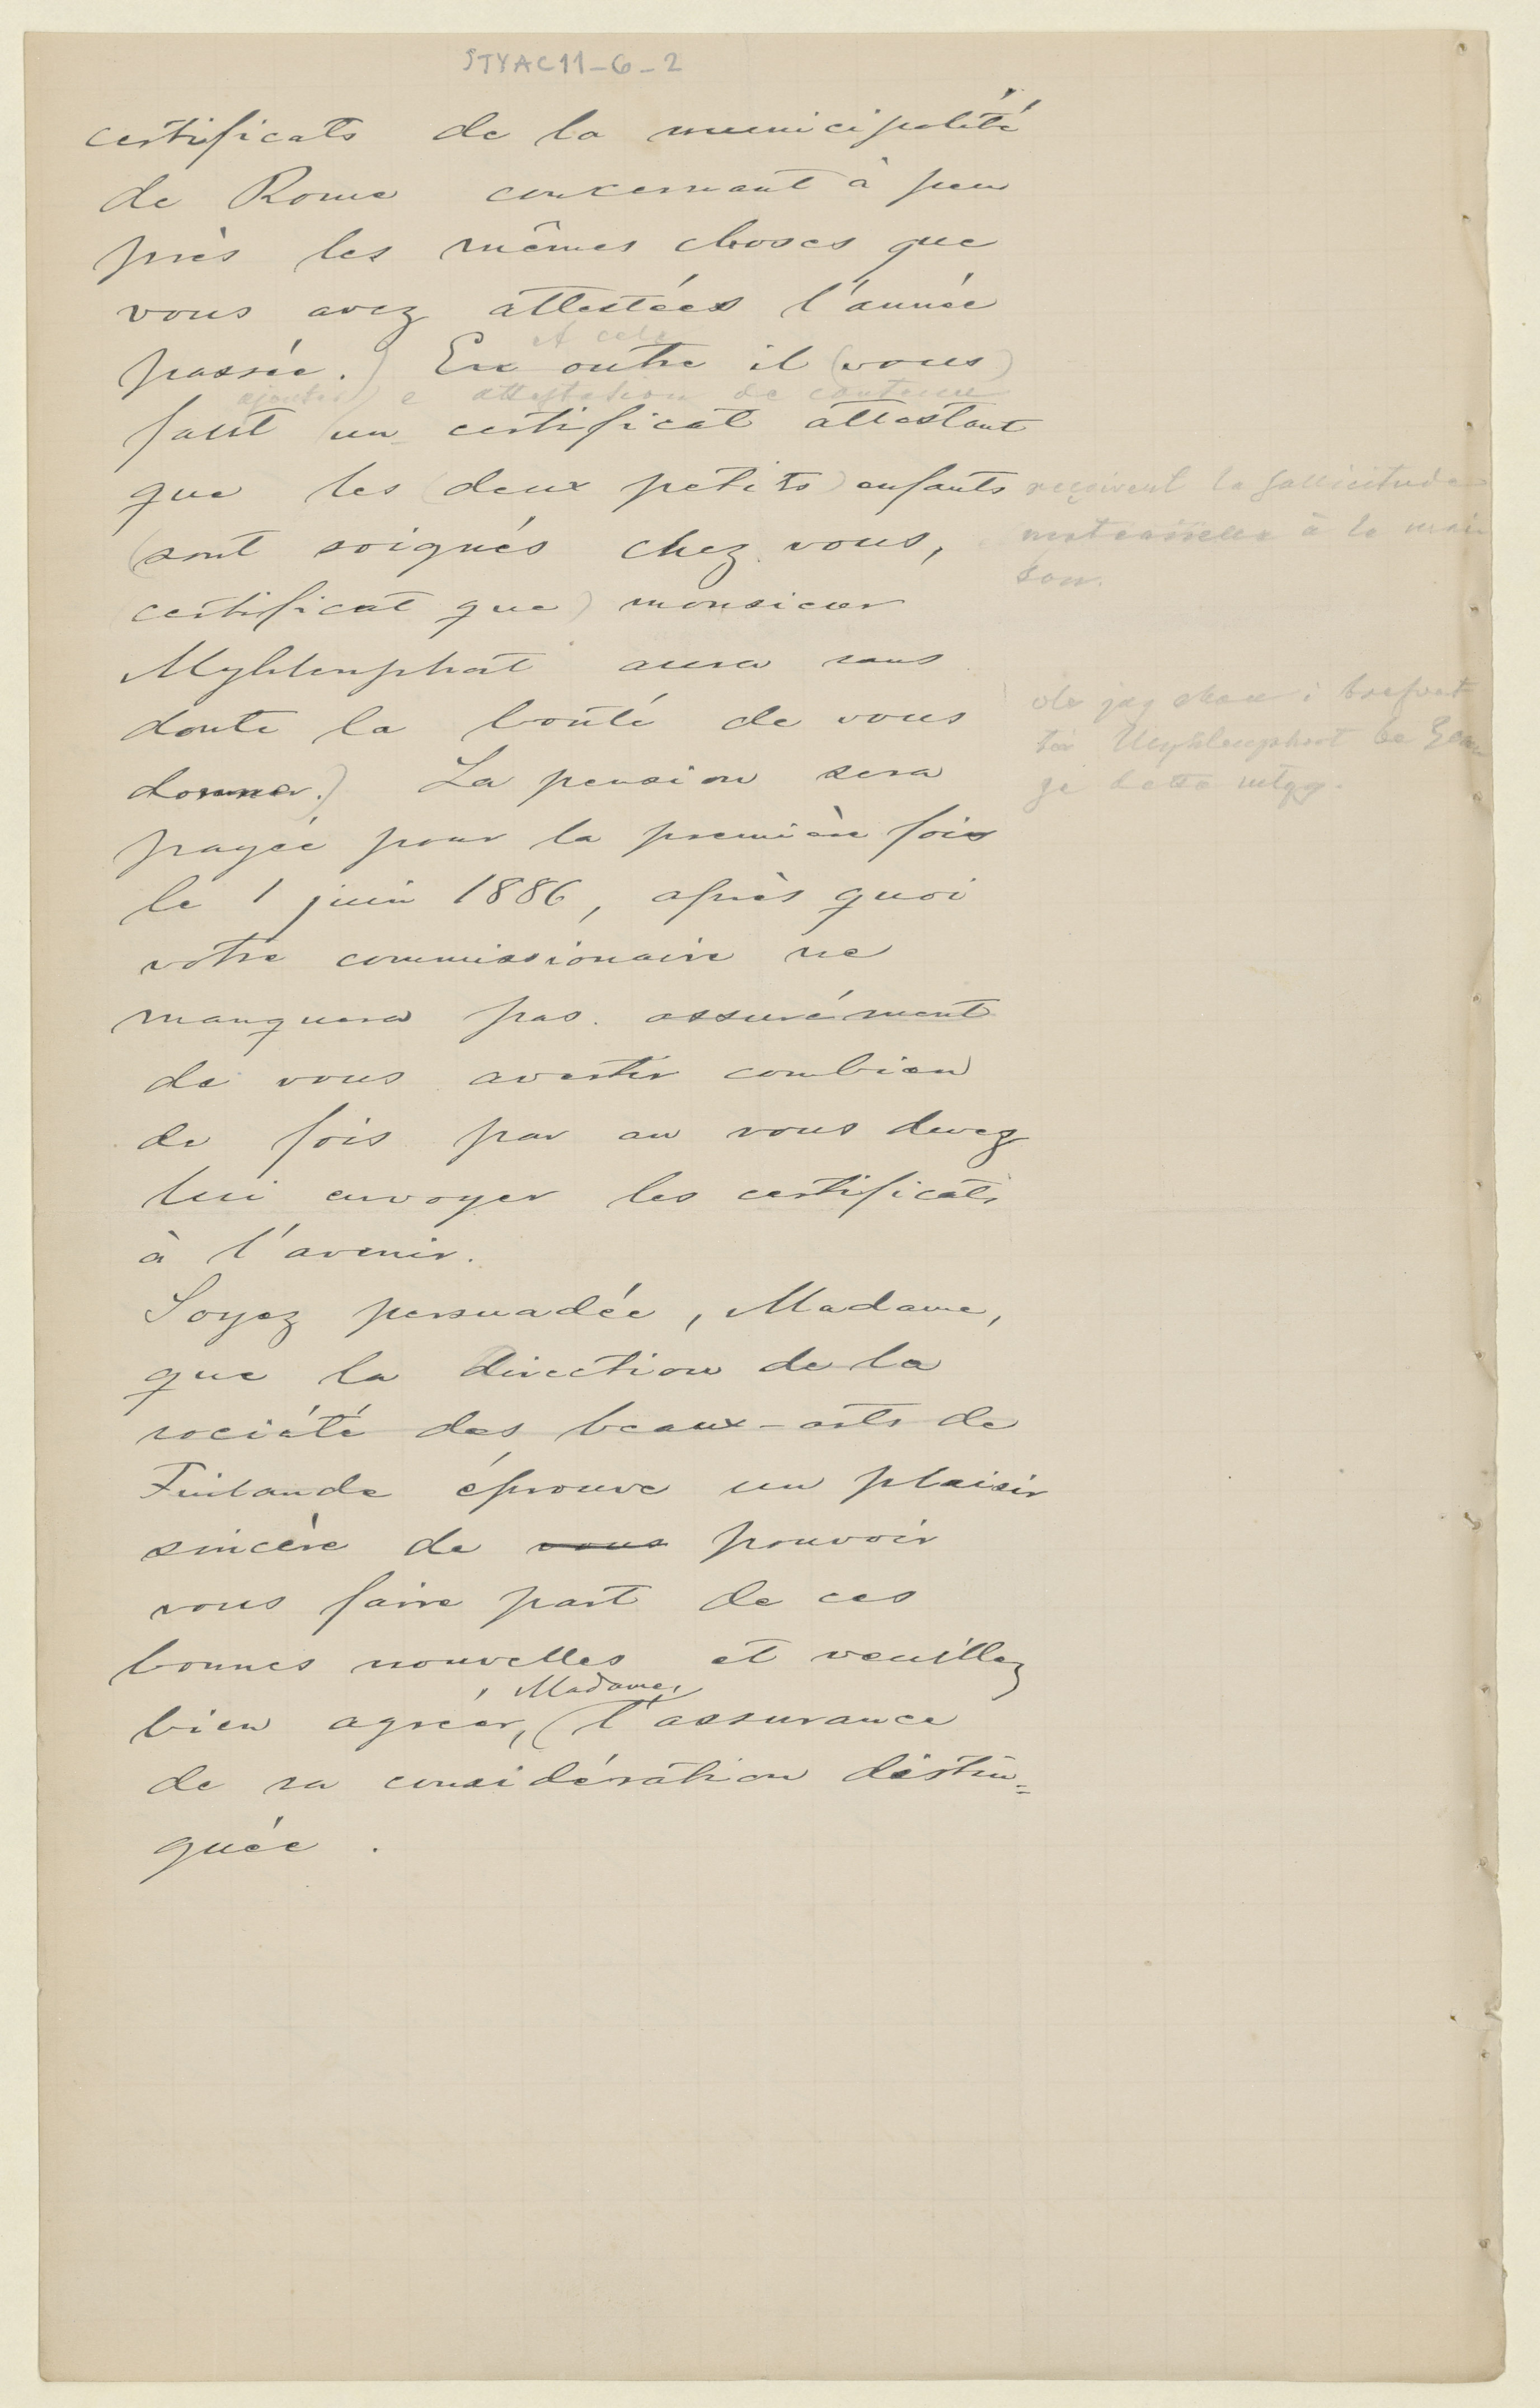 STYAC11-6-2
certificats de la municipalité
de Rome concernant à peu
près les mêmes choses que
vous avez attestées l'année
A cela
passée.) En outre il (vous)
ajouter) e attestation de contenu
faut (un certificat attestant
que les (deux petits) enfants reçoivent la sollicitude
(sont soignés chez vous, maternelle à la mai
son.
certificat que) monsieur
Myhlenphort aura sans
doute la bonté de vous
donner.) La pension sera
payée pour la première fois
le 1 juin 1886, après quoi
votre commissionaire ne
manquera pas assurément
de vous avertir combien
de fois par an vous devez
lui envoyer les certificats
à l'avenir.
Soyez persuadée, Madame,
que la direction de la
société des beaux-arts de
Finlande éprouve un plaisir
sincère de vous pouvoir
vous faire part de ces
bonnes nouvelles et veuillez
, Madame,
bien agréer, (l'assurance
de sa considération distin=
guée.
jag i brefvet
Myhlenphort be
detta